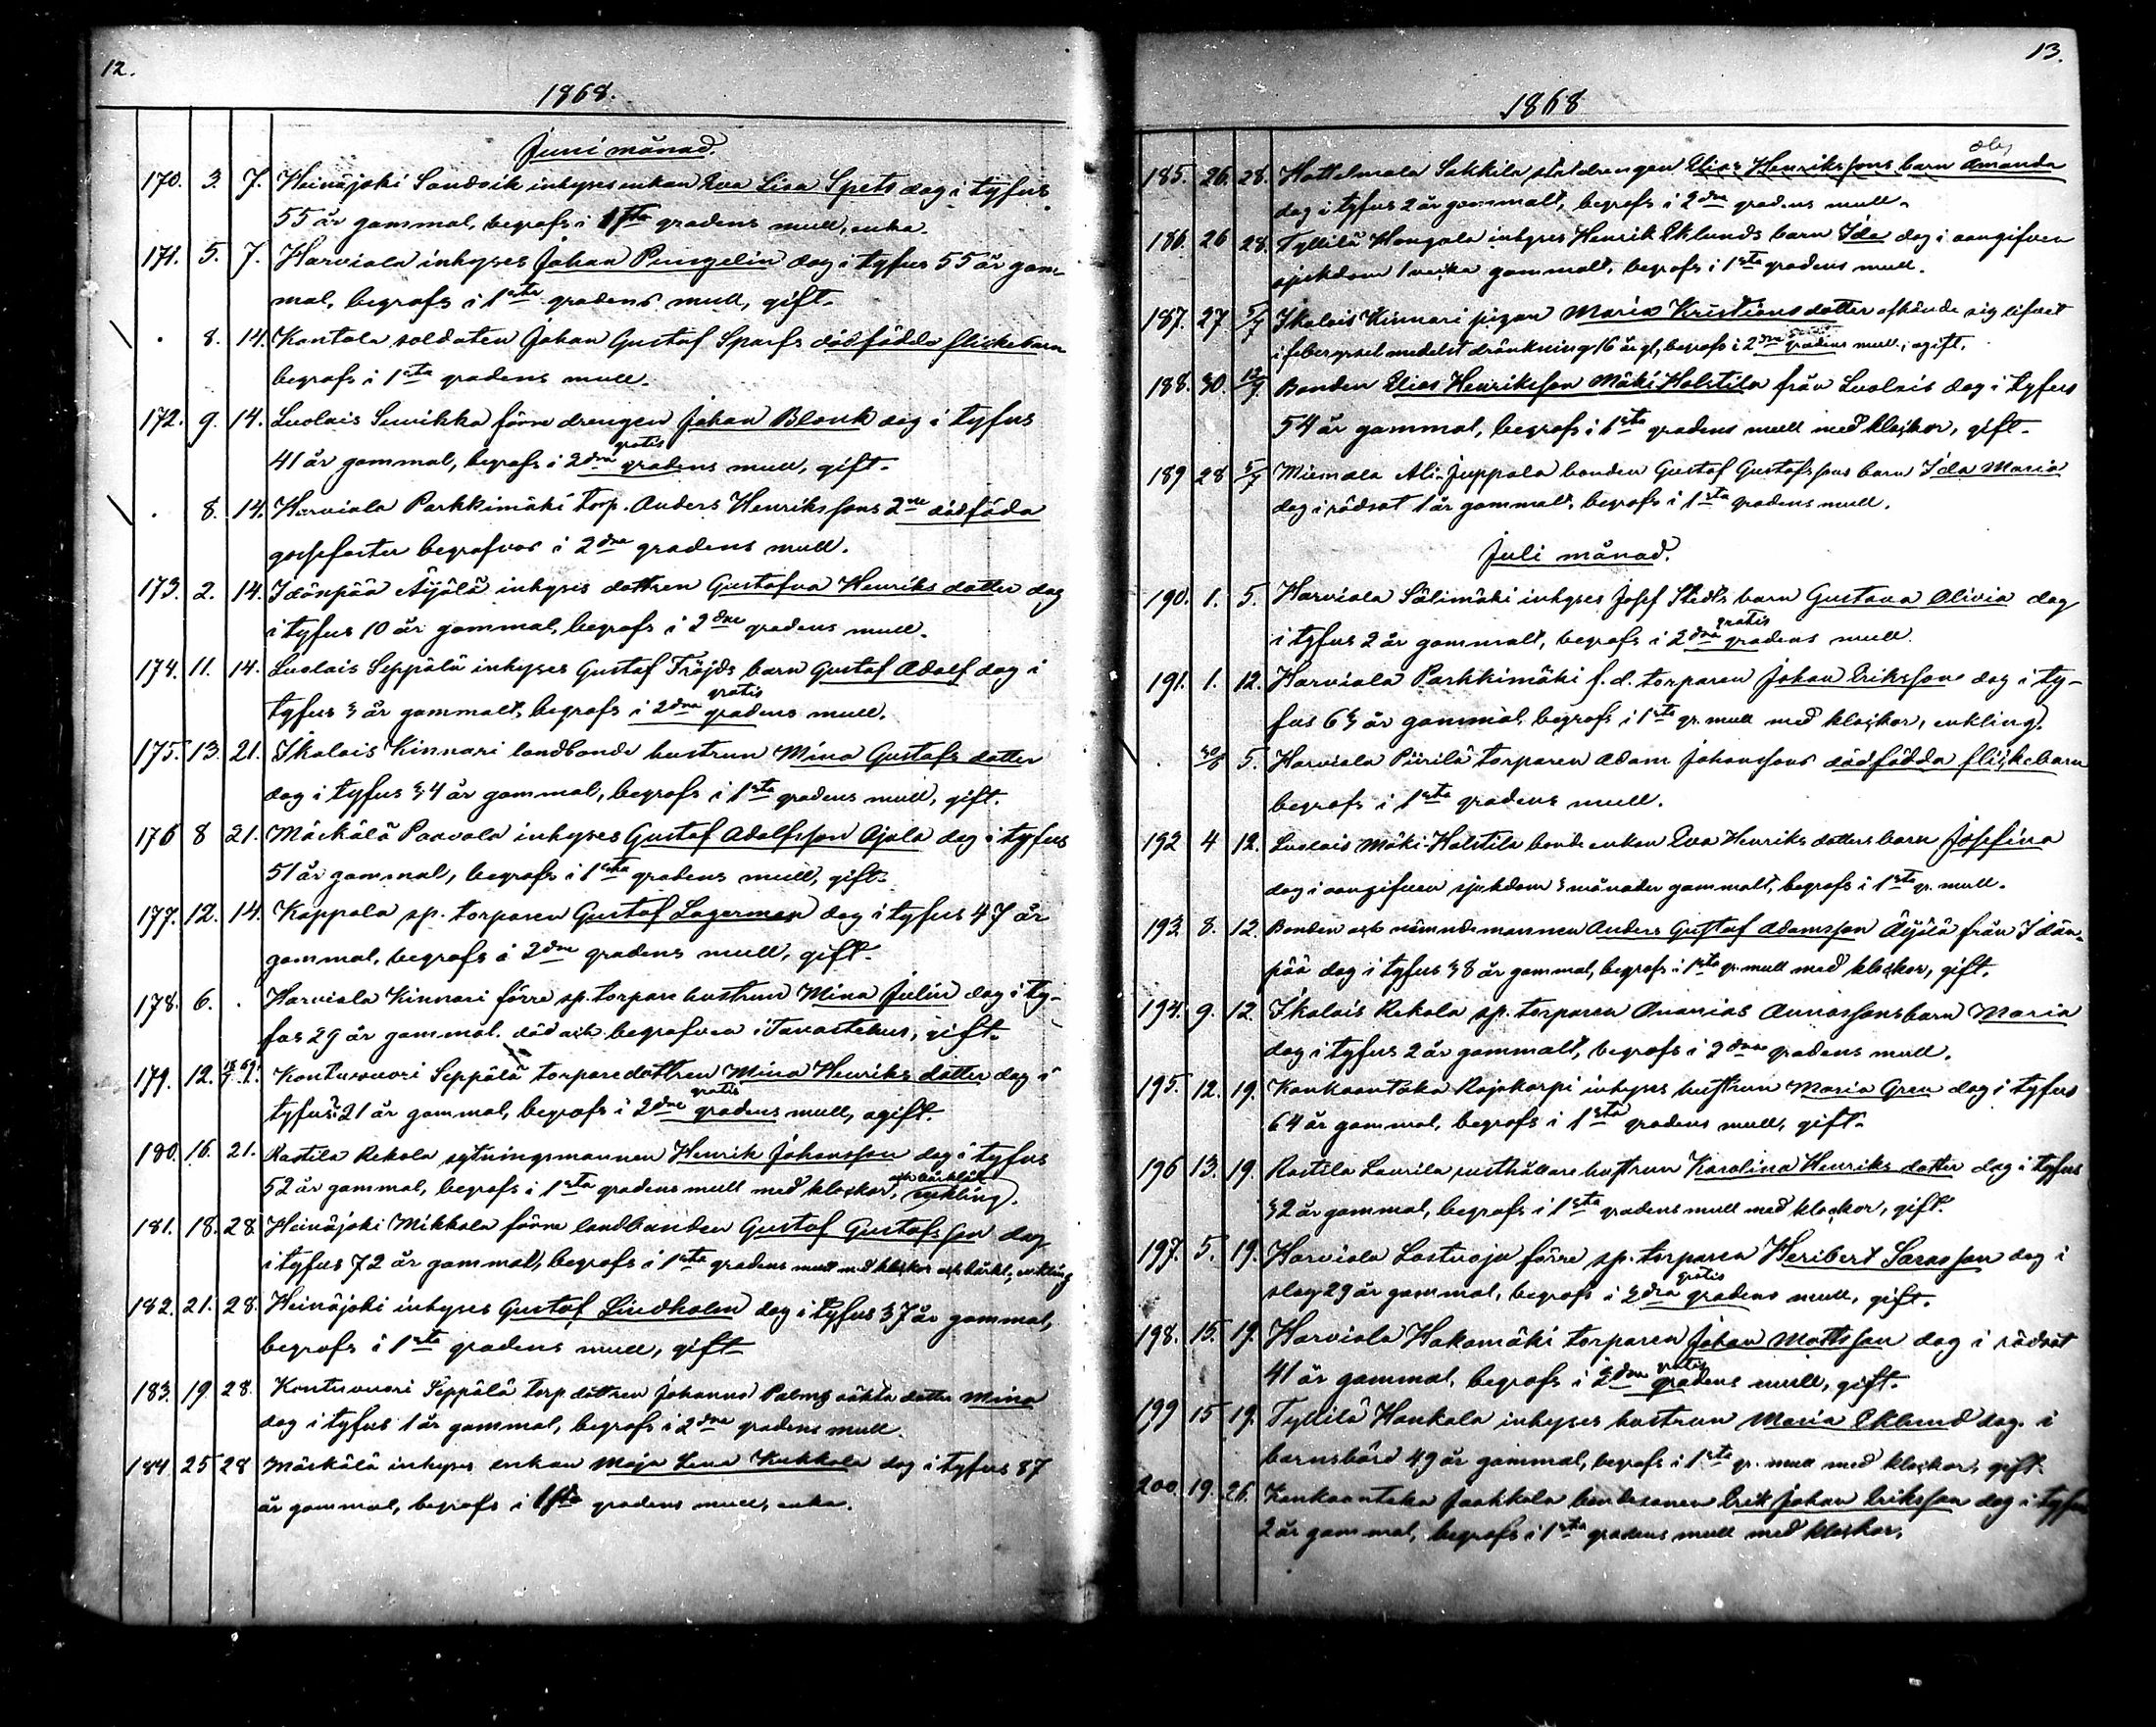 12.
1868.
Juni månad.
170. 3. 7. Heinäjoki Sandvik inhyses enkan Eva Lisa Spets dog i tyfus
55 år gammal, begrofs i 1sta gradens mull, enka.
171. 5. 7. Harviala inhyses Johan Pungelin dog i tyfus 55 år gam-
mal, begrofs i 1sta gradens mull, gift.
. 8. 14. Kantola soldaten Johan Gustaf Sparfs dödfödda flickebarn
begrofs i 1sta gradens mull.
172. 9. 14. Luolais förre drengen Johan Blonk dog i tyfus
gratis
41 år gammal, begrofs i 2dra gradens mull, gift.
. 8. 14. Harviala Parkkimäki torp. Anders Henrikssons 2ne dödföda
gossfoster begrofvos i 2dra gradens mull.
173. 2. 14. Idänpää Äyölä inhyses dottren Gustafva Henriks dotter dog
i tyfus 10 år gammal, begrofs i 2dra gradens mull.
174. 11. 14. Luolais Seppälä inhyses Gustaf Fröjds barn Gustaf Adolf dog i
gratis
tyfus 3 år gammalt, begrofs i 2dra gradens mull.
175. 13. 21. Ikalois Kinnari landbonde hustrun Mina Gustafs dotter
dog i tyfus 34 år gammal, begrofs i 1sta gradens mull, gift.
176 8 21. Mäskälä Paavola inhyses Gustaf Adolfsson Ojala dog i tyfus
51 år gammal, begrofs i 1sta gradens mull, gift.
177. 12. 14. Kappola sp. torparen Gustaf Lagerman dog i tyfus 47 år
gammal, begrofs i 2dra gradens mull, gift.
178. 6. . Harviala Kinnari förre sp. torpare hustrun Mina Julin dog i ty-
fus 29 år gammal. död och begrafven i Tavastehus, gift.
179. 12. Kontuvuori Seppälä torparedottren Mina Henriks dotter dog i
gratis
tyfus 21 år gammal, begrofs i 2dra gradens mull, ogift.
180. 16. 21. Rastila Rekola sytningsmannen Henrik Johansson dog i tyfus
52 år gammal, begrofs i 1sta gradens mull med klockor, enkling.
181. 18. 28. Heinäjoki Mikkola förre landbonden Gustaf Gustafsson dog
i tyfus 72 år gammal, begrofs i 1sta gradens mull med klockor och bårkl. enkling
182. 21. 28. Heinäjoki inhyses Gustaf Lindholm dog i tyfus 37 år gammal,
begrofs i 1sta gradens mull, gift.
183. 19. 28. Kontuvuori Seppälä torp. dottren Johanna Palms oäkta dotter Mina
dog i tyfus 1 år gammal, begrofs i 2dra gradens mull.
184. 25 28 Mäskälä inhyses enkan Maja Lena Kukkola dog i tyfus 87
år gammal, begrofs i 1sta gradens mull, enka.
13.
1868
185. 26. 28. Hattelmala Sakkila statdrengen Elias Henrikssons barn Amanda
dog i tyfus 2 år gammalt, begrofs i 2dra gradens mull.
186. 26 28. Tyllilä Hongola inhyses Henrik Eklunds barn Ida dog i oangifven
sjukdom 1 vecka gammalt, begrofs i 1sta gradens mull.
187. 27 5/7 Ikalois Kinnari pigan Maria Kristians dotter afhände sig lifvet
i feberyrsel medelst dränkning 16 år gl, begrofs i 2dra gradens mull, ogift.
188. 30. 12/7. Bonden Elias Henriksson Mäki Holstila från Luolais dog i tyfus
54 år gammal, begrofs i 1sta gradens mull med klockor, gift.
189 28 5/7 Miemala Ali-Juppala bonden Gustaf Gustafssons barn Ida Maria
dog i rödsot 1 år gammalt, begrofs i 1sta gradens mull.
Juli månad.
190. 1. 5. Harviala Sälimäki inhyses Josef Stedts barn Gustava Olivia dog
gratis
i tyfus 2 år gammalt, begrofs i 2dra gradens mull.
191. 1. 12. Harviala Parkkimäki f.d. torparen Johan Eriksson dog i ty-
fus 63 år gammal, begrofs i 1sta gr. mull med klockor, enkling.
. 30/6 5. Harviala Piirilä torparen Adam Johanssons dödfödda flickebarn
begrofs i 1sta gradens mull.
192 4 12. Luolais Mäki-Holstila bonde enkan Eva Henriks dotters barn Josefina
dog i oangifven sjukdom 3 månader gammalt, begrofs i 1sta gr. mull.
193. 8. 12. Bonden och nämndemannen Anders Gustaf Adamsson Äyölä från Idän-
pää dog i tyfus 38 år gammal, begrofs i 1sta gr. mull med klockor, gift.
194. 9. 12 Ikalois Rekola sp. torparen Ananias Annassons barn Maria
dog i tyfus 2 år gammalt, begrofs i 2dra gradens mull.
195. 12. 19. Kankaantaka Rajakorpi inhyses hustrun Maria Gren dog i tyfus
64 år gammal, begrofs i 1sta gradens mull, gift.
196 13. 19. Rastila Laurila rusthållare hustrun Karolina Henriks dotter dog i tyfus
32 år gammal, begrofs i 1sta gradens mull med klockor, gift.
197. 5. 19. Harviala Lastuoja förre sp. torparen Heribert Sarasson dog i
gratis
slag 29 år gammal, begrofs i 2dra gradens mull, gift.
198. 15. 19. Harviala Hakamäki torparen Johan Mattsson dog i rödsot
gratis
41 år gammal, begrofs i 2dra gradens mull, gift.
199 15 19. Tyllilä Hankala inhyses hustrun Maria Eklund dog i
barnsbörd 49 år gammal, begrofs i 1sta gr. mull med klockor, gift.
200. 19. 26. Kankaantaka Jaakkola bondesonen Erik Johan Eriksson dog i tyfus
2 år gammal, begrofs i 1sta gradens mull med klockor.